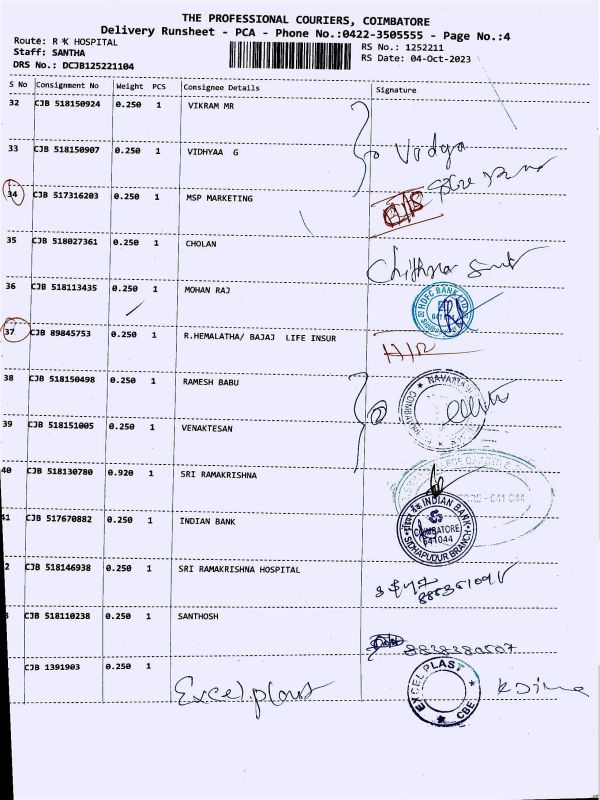 THE PROFESSIONAL COURIERS, COIMBATORE
Delivery Runsheet - PCA - Phone No.:0422-3505555 - Page No.:4
Route: R K HOSPITAL
Staff: SANTHA
DRS No.: DCJB125221104
RS No.: 1252211
RS Date: 04-Oct-2023
S No Consignment No Weight PCS Consignee Details Signature
32 CJB 518150924 0.250 1 VIKRAM MR
33 CJB 518150907 0.250 1 VIDHYAA G Vidya
34 CJB 517316203 0.250 1 MSP MARKETING
35 CJB 518027361 0.250 1 CHOLAN
36 CJB 518113435 0.250 1 MOHAN RAJ HDFC BANK LTD
37 CJB 89845753 0.250 1 R.HEMALATHA/ BAJAJ LIFE INSUR
38 CJB 518150498 0.250 1 RAMESH BABU
39 CJB 518151005 0.250 1 VENAKTESAN
40 CJB 518130780 0.920 1 SRI RAMAKRISHNA
41 CJB 517670882 0.250 1 INDIAN BANK INDIAN BANK COIMBATORE 641044 SIDHAPUDUR BRANCH
2 CJB 518146938 0.250 1 SRI RAMAKRISHNA HOSPITAL
CJB 518110238 0.250 1 SANTHOSH 8838280507
CJB 1391903 0.250 1 Excel plast EXCEL PLAST CBE